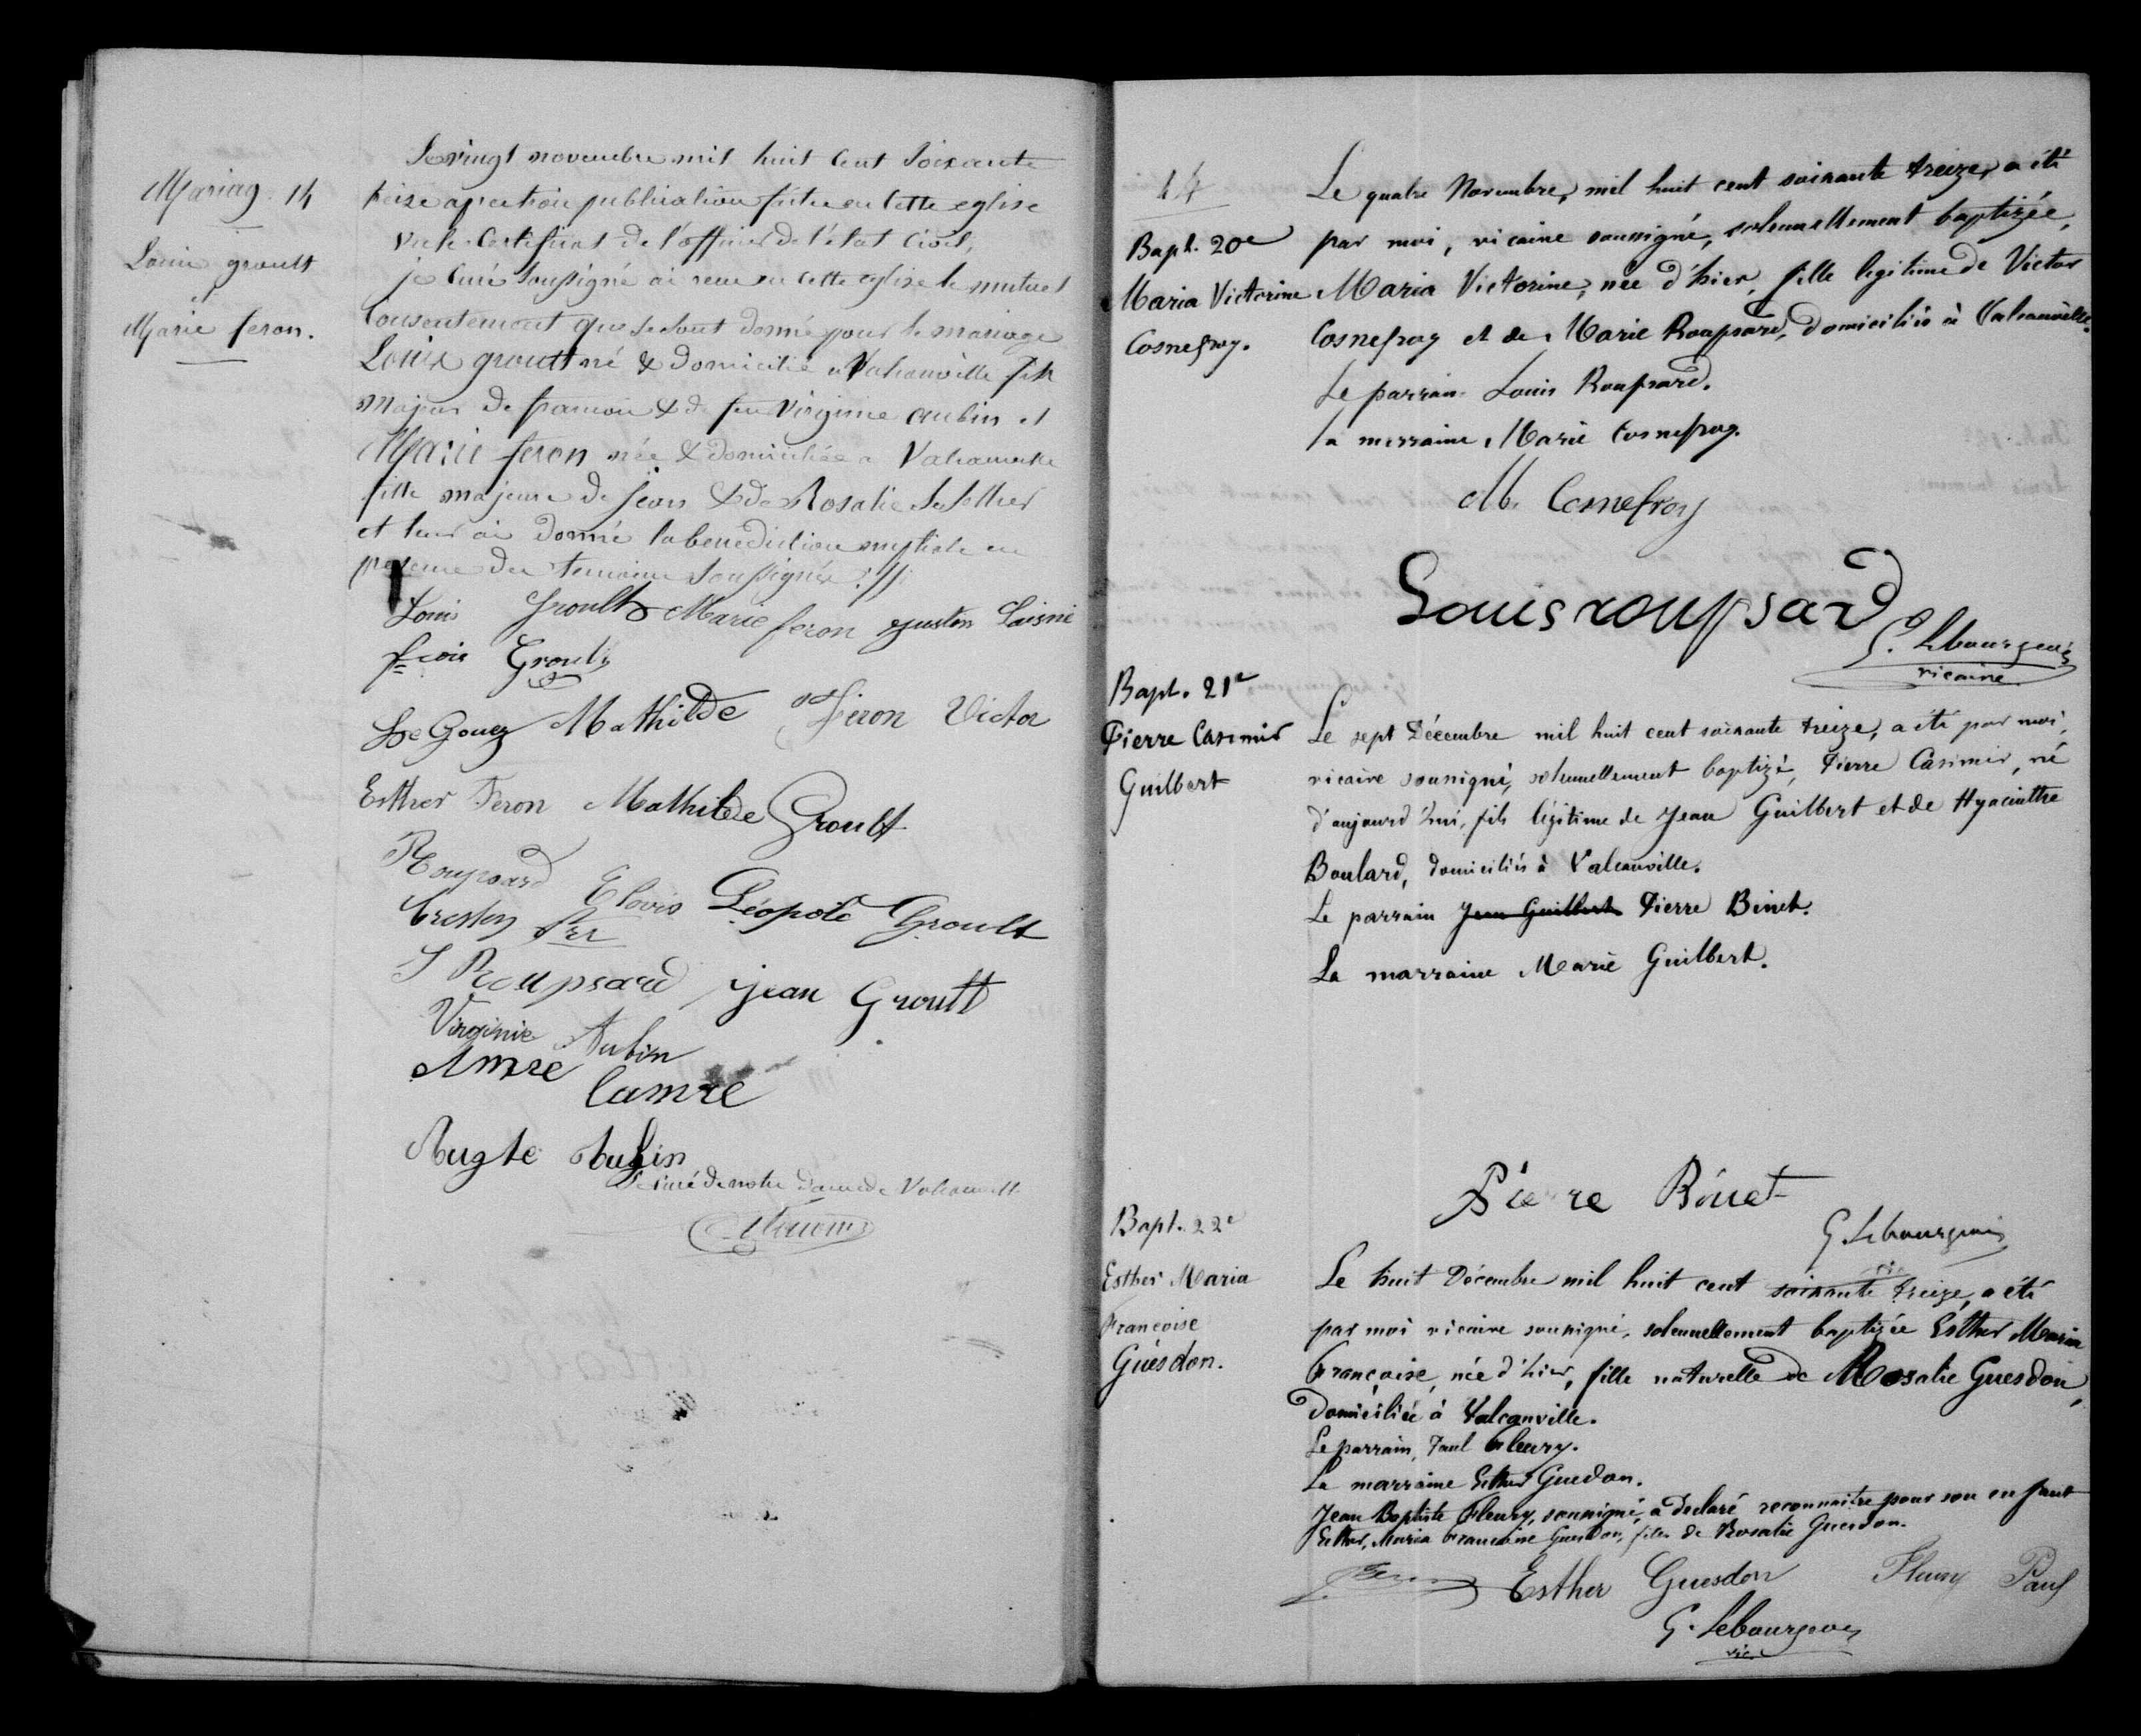 Mariag. 14
Louis groult
et
Marie feron.
Le vingt novembre mil huit cent soixante
treize apres trois publications faites en cette eglise
vu le Certificat de l'officier de l'état Civil,
je Curé soussigné ai reçu en cette eglise le mutuel
Consentement que se sont donné pour le mariage
Louis groult né & domicilié a Valcanville fils
majeur de francois & de feu Virginie aubin et
Marie feron née & domiciliée a Valcanville
fille majeure de jean & de Rosalie
et leur ai donné la benediction nuptiale en
presence des temoins soussignés
Louis Groult Marie feron Laisné
fcois Groult
Le Gouez Mathilde feron Victor
Esther Feron Mathilde Groult
Roupsard Clovis Léopold Groult
J Roupsard jean Groult
Virginie Aubin
Aimée
Augte Aubin
le curé de notre Dame de Valcanville
44
Bapt. 20e
Maria Victorine
Cosnefroy.
Le quatre Novembre, mil huit cent soixante treize, a été
par moi, vicaire soussigné, solennellement baptizée,
Maria Victorine, née d'hier, fille legitime de Victor
Cosnefroy et de Marie Roupsard, domiciliés à Valcanville.
Le parrain Louis Roupsard.
La marraine, Marie Cosnefroy.
M. Cosnefroy
Louis roupsard
G. Lebourgeois
vicaire
Bapt. 21e
Pierre Casimir
Guilbert
Le sept Décembre mil huit cent soixante treize, a été par moi,
vicaire soussigné, solennellement baptizé, Pierre Casimir, né
d'aujourd'hui, fils légitime de Jean Guilbert et de Hyacinthe
Boulard, domiciliés à Valcanville.
Le parrain Jean Guilbert Pierre Binet.
La marraine Marie Guilbert.
Pierre Binet
G. Lebourgeois
vic
Bapt. 22e
Esther Maria
Françoise
Guesdon.
Le huit Décembre mil huit cent soixante treize, a été
par moi vicaire soussigné, solennellement baptizée Esther Maria
Françoise, née d'hier, fille naturelle de Rosalie Guesdon,
domiciliée à Valcanville.
Le parrain, Paul Fleury.
La marraine Esther Guedon.
Jean Baptiste Fleury, soussigné, a declaré reconnaitre pour son enfant
Esther, Maria Francoise Guesdon, fille de Rosalie Guesdon.
Esther Guesdon Fleury Paul
G. Lebourgeois
vic